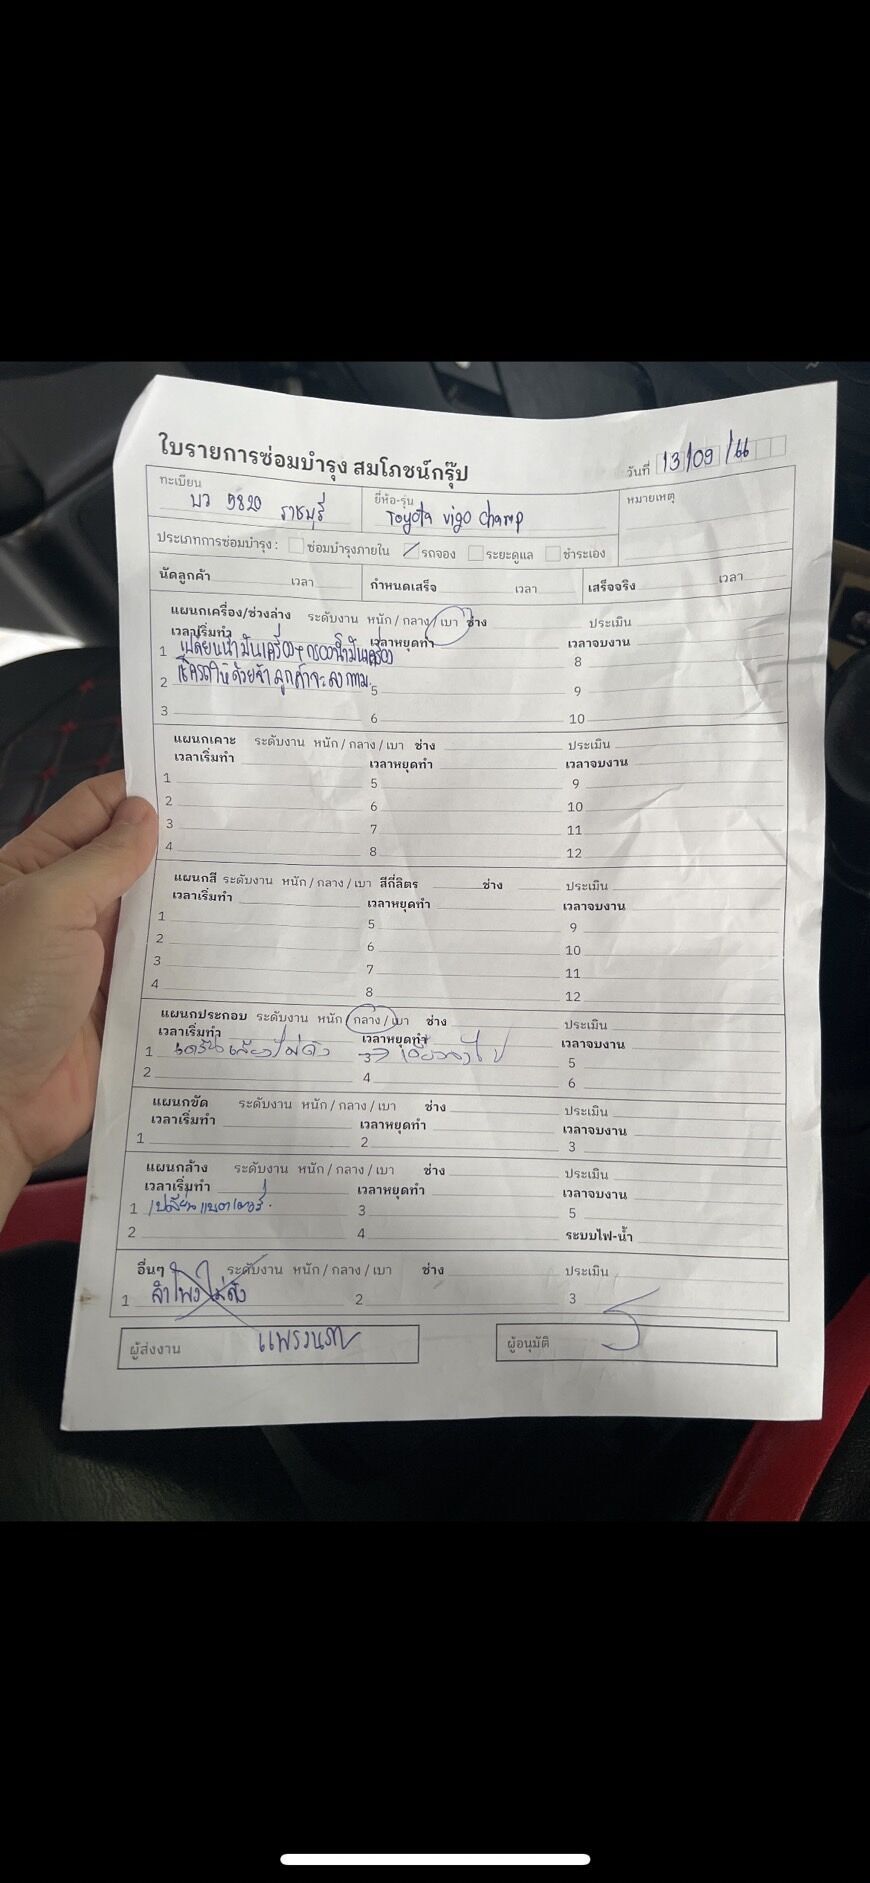 ใบรายการซ่อมบำรุง สมโภชน์กรุ๊ป
วันที่ 13/09/66
ทะเบียน บว 9820 ราชบุรี
ยี่ห้อ-รุ่น Toyota vigo champ
หมายเหตุ
ประเภทการซ่อมบำรุง : ซ่อมบำรุงภายใน รถจอง ระยะดูแล ชำระเอง
นัดลูกค้า เวลา กำหนดเสร็จ เวลา เสร็จจริง เวลา
แผนกเครื่อง/ช่วงล่าง ระดับงาน หนัก / กลาง / เบา ช่าง ประเมิน
เวลาเริ่มทำ เวลาหยุดทำ เวลาจบงาน
1 เปลี่ยนน้ำมันเครื่อง+กรองน้ำมันเครื่อง 8
2 เช็ครถให้ด้วยจ้า ลูกค้าจะลง กทม. 5 9
3 6 10
แผนกเคาะ ระดับงาน หนัก / กลาง / เบา ช่าง ประเมิน
เวลาเริ่มทำ เวลาหยุดทำ เวลาจบงาน
1 5 9
2 6 10
3 7 11
4 8 12
แผนกสี ระดับงาน หนัก / กลาง / เบา สีกี่ลิตร ช่าง ประเมิน
เวลาเริ่มทำ เวลาหยุดทำ เวลาจบงาน
1 5 9
2 6 10
3 7 11
4 8 12
แผนกประกอบ ระดับงาน หนัก / กลาง / เบา ช่าง ประเมิน
เวลาเริ่มทำ เวลาหยุดทำ เวลาจบงาน
1 เสียงไม่ดัง 3 5
2 4 6
แผนกขัด ระดับงาน หนัก / กลาง / เบา ช่าง ประเมิน
เวลาเริ่มทำ เวลาหยุดทำ เวลาจบงาน
1 2 3
แผนกล้าง ระดับงาน หนัก / กลาง / เบา ช่าง ประเมิน
เวลาเริ่มทำ เวลาหยุดทำ เวลาจบงาน
1 เปลี่ยนแบตเตอรี่ 3 5
2 4 ระบบไฟ-น้ำ
อื่นๆ ระดับงาน หนัก / กลาง / เบา ช่าง ประเมิน
1 ลำโพงไม่ดัง 2 3
ผู้ส่งงาน
ผู้อนุมัติ